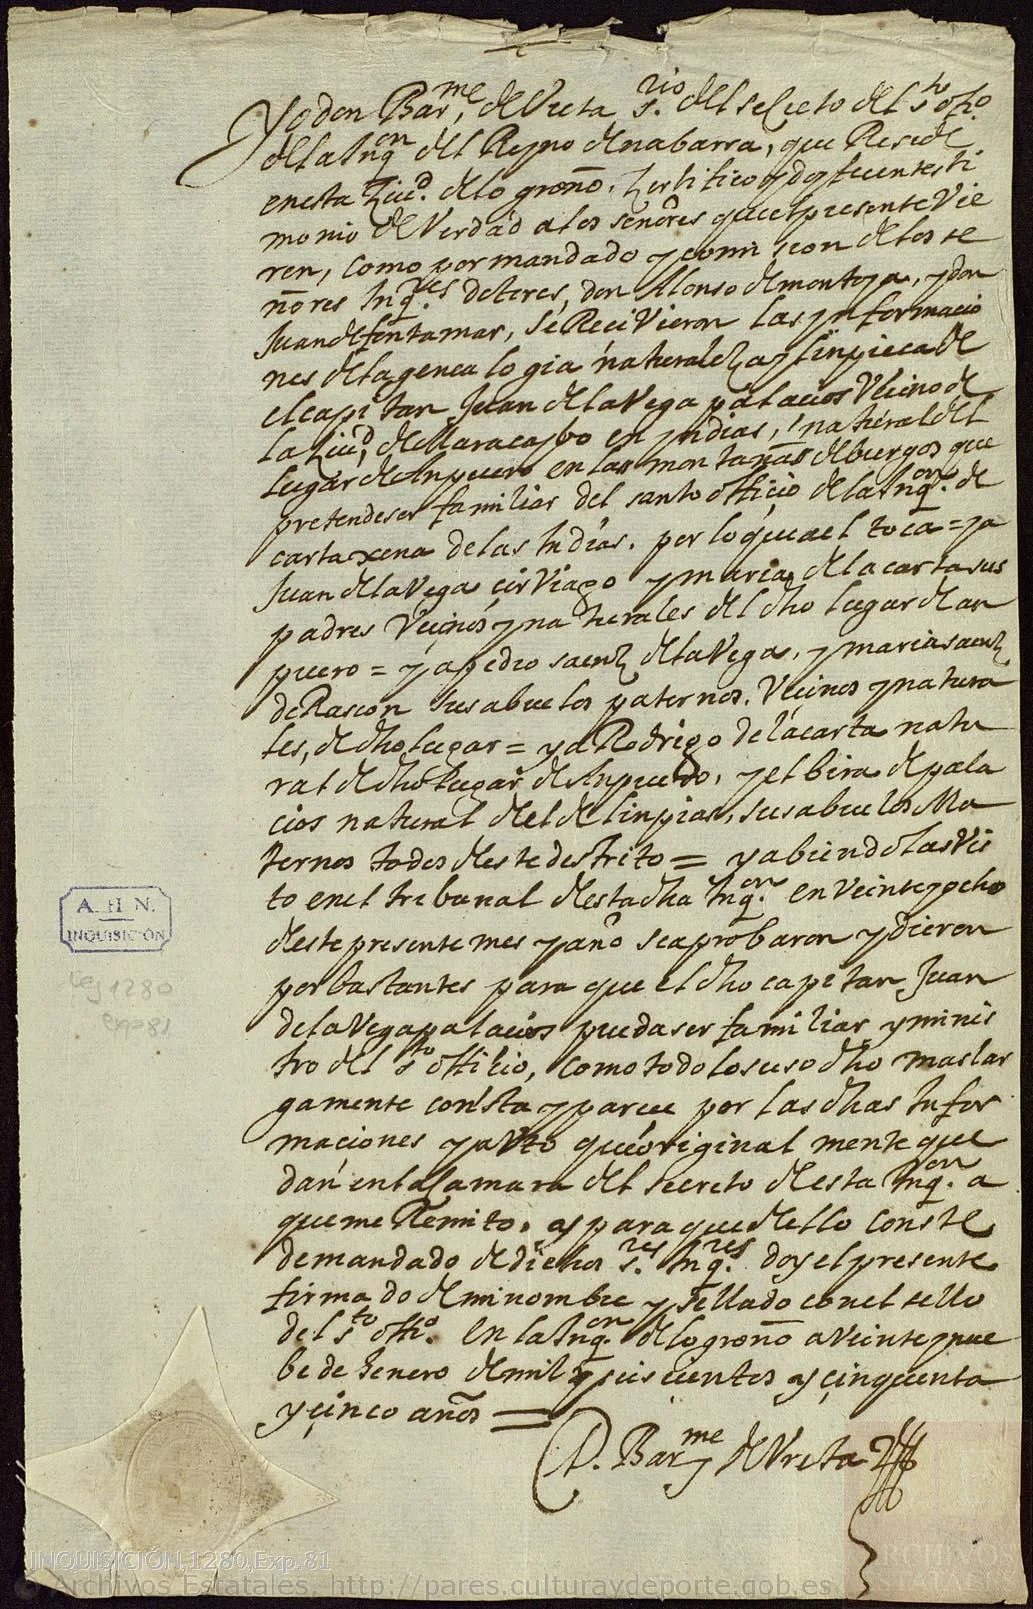 Yo don Barme, de Vreta srio del secreto del sto offo
de la Inqon del Reyno de nabarra, que Reside
en esta Ziud de logroño, Zertifico y doy fee en testi
monio de Verdad a los señores que el presente Vie
ren, como por mandado y comission de los se
ñores Inqres dotores, don Alonso de montoya, y don
Juan de fontamar, se ReciVieron las ynformacio
nes de la genealogia naturaleza y linpieca de
el capitan Juan de la Vega palacios Vecino de
la Ziud, de Maracaybo en yndias, natural del
lugar de Anpuero en las montañas de burgos que
pretende ser familiar del santo officio de la Inqon de
cartaxena de las Indias. por lo que a el toca = y a
Juan de la Vega cirViago y maria de la carta sus
padres Vecinos y naturales del dho lugar de an
puero = y a pedro saenz de la Vega, y maria saenz
de Rascon sus abuelos paternos. Vecinos y natura
les, de dho lugar = y a Rodrigo de la carta natu
ral de dho lugar de Anpuero, y elbira de pala
cios natural de el de linpias, sus abuelos Ma
ternos todos deste destrito = y abiendolas Vis
to en el tribunal desta dha Inqon en Veinte y ocho
deste presente mes y año se aprobaron y dieron
por bastantes para que el dho capitan Juan
de la Vega palacios pueda ser familiar y minis
tro del sto offizio, como todo lo suso dho mas lar
gamente consta y parece por las dhas Infor
maciones y auto que original mente que
dan en la camara del secreto desta Inqon a
que me Remito. y para que dello conste
de mandado de dichos sres Inqres doy el presente
firmado de mi nombre y sellado con el sello
del sto offo. En la Inqon de logroño a Veinte y nue
be de henero de mil y seiscientos y çinquenta
y çinco años =
D. Barme de Vreta
A. H. N.
INQUISICIÓN
Leg 1280
exp 81
INQUISICIÓN,1280,Exp.81
© Archivos Estatales, http://pares.culturaydeporte.gob.es